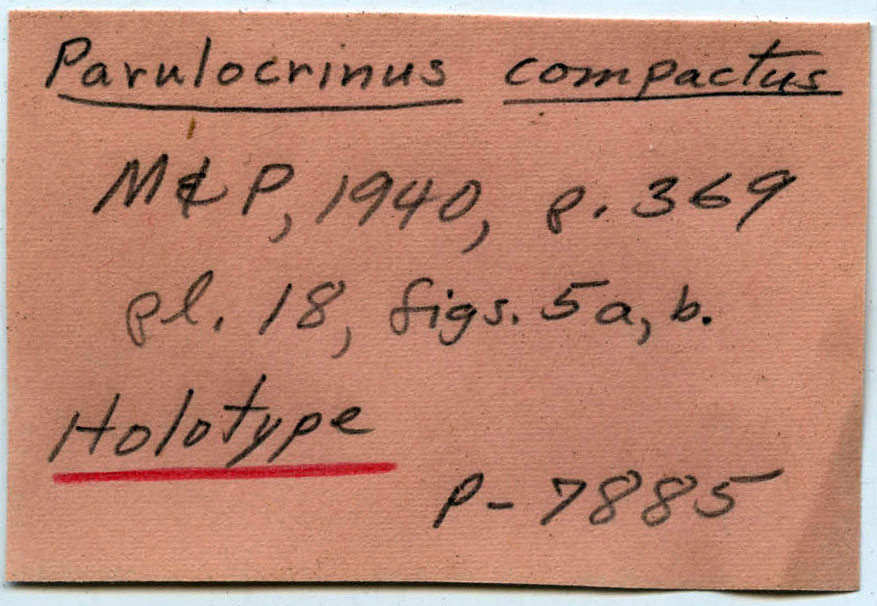 Parulocrinus compactus
M & P, 1940, p. 369
pl. 18, figs. 5a, b.
Holotype
P-7885